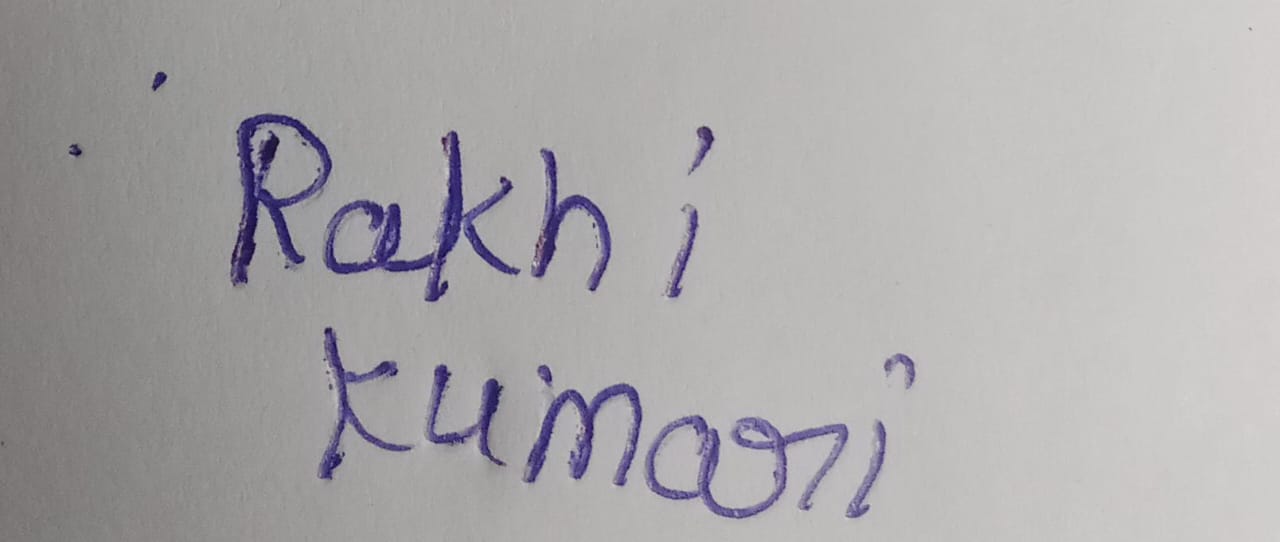 Rakhi
Kumari